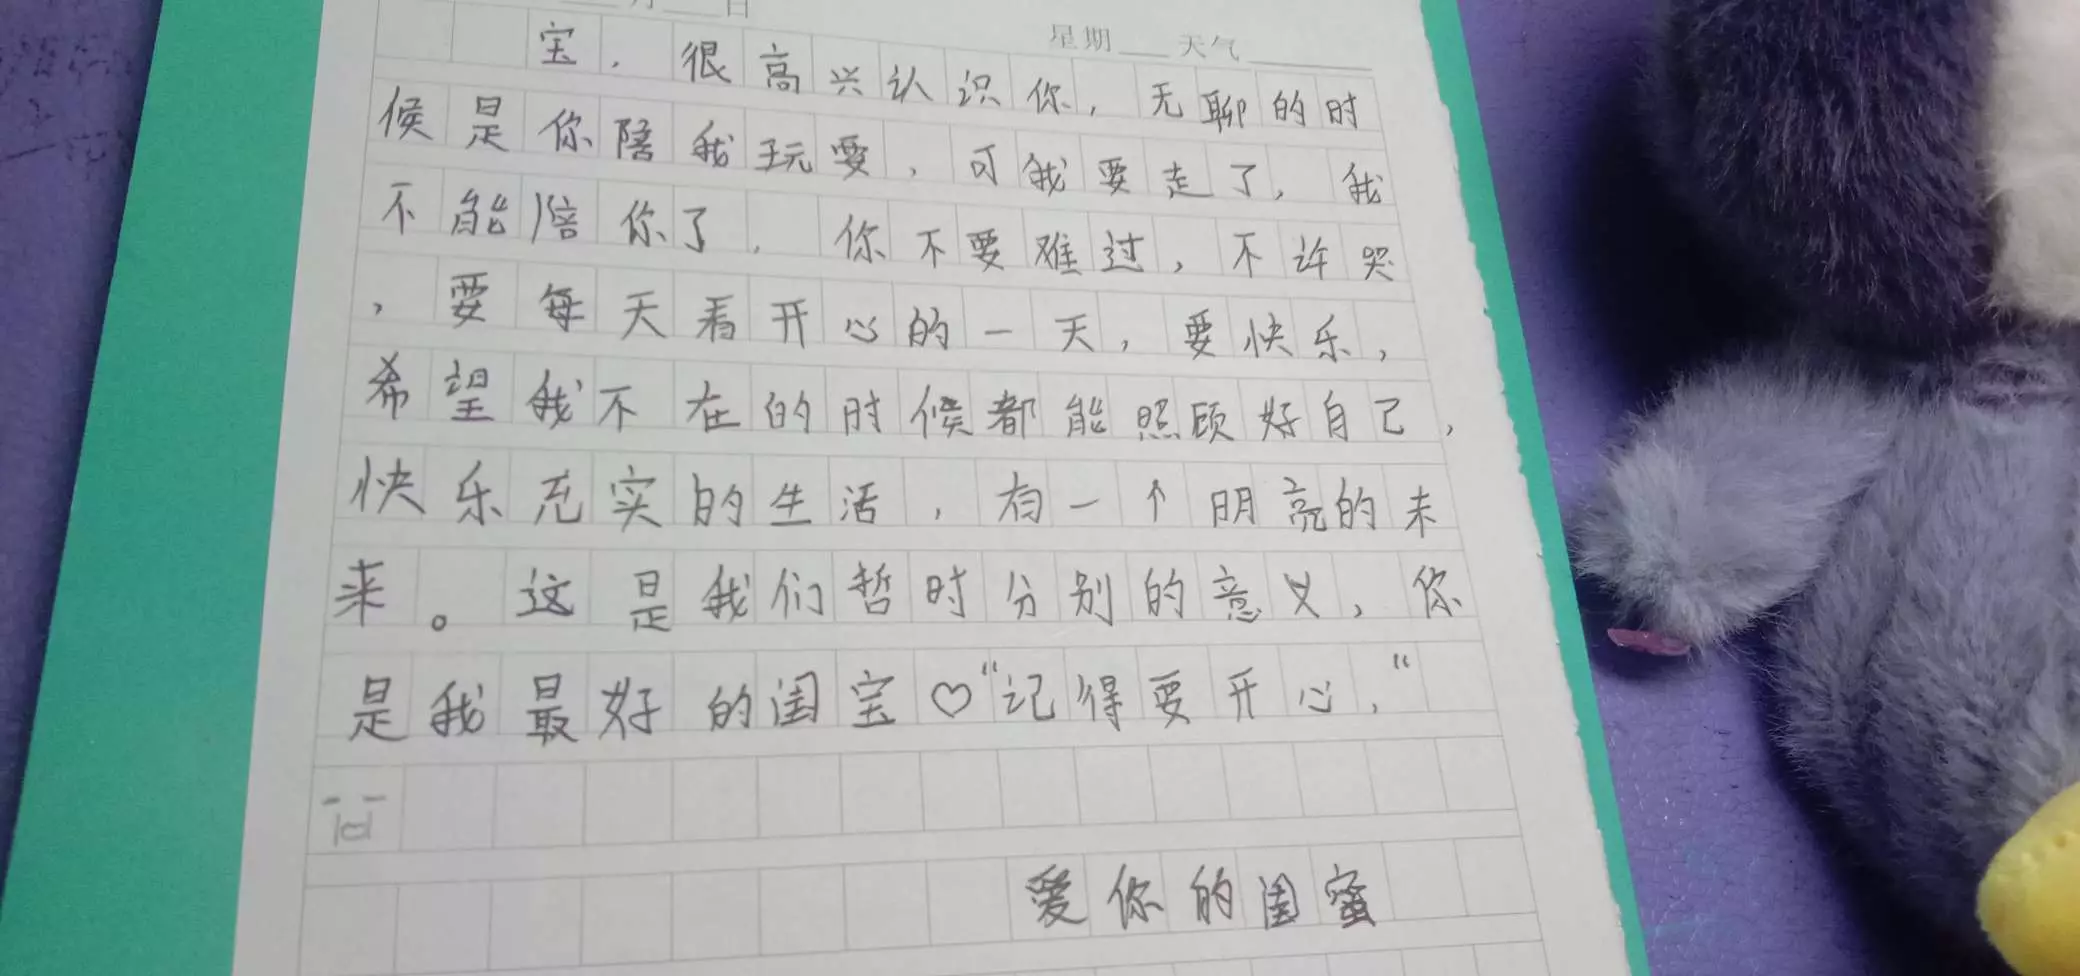 月 日
星期 天气
宝，很高兴认识你，无聊的时
候是你陪我玩耍，可我要走了，我
不能陪你了，你不要难过，不许哭
，要每天看开心的一天，要快乐，
希望我不在的时候都能照顾好自己，
快乐充实的生活，有一个明亮的未
来。这是我们哲时分别的意义，你
是我最好的闺宝♡“记得要开心，“
爱你的闺蜜